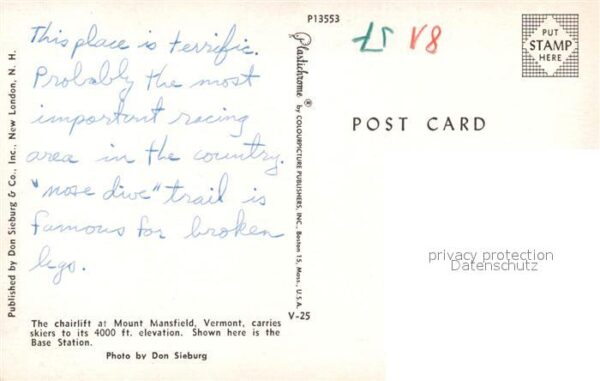 P13553
This place is terrific.
Probably the most
important racing
area in the country.
"nose dive" trail is
famous for broken
legs.
The chairlift at Mount Mansfield, Vermont, carries
skiers to its 4000 ft. elevation. Shown here is the
Base Station.
Photo by Don Sieburg
Published by Don Sieburg & Co., Inc., New London, N. H.
Plastichrome ® by COLOURPICTURE PUBLISHERS, INC., Boston 15, Mass., U.S.A.
V-25
POST CARD
PUT
STAMP
HERE
privacy protection
Datenschutz